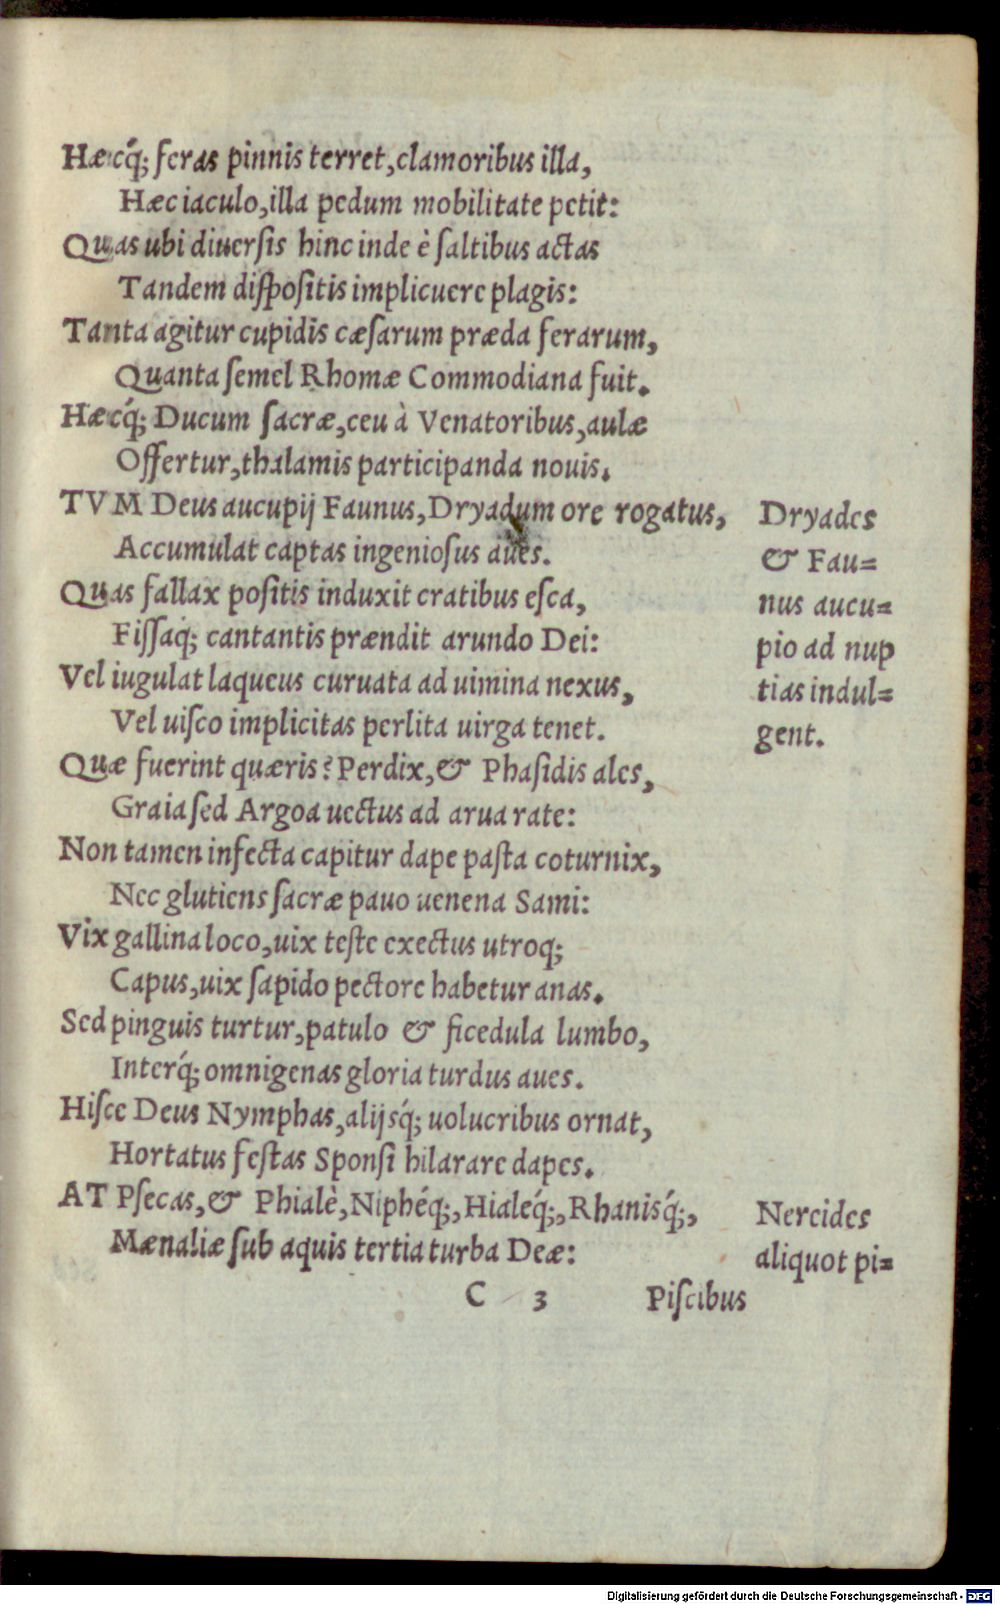 Hæcq́; feras pinnis terret, clamoribus illa,
Hæc iaculo, illa pedum mobilitate petit:
Quas ubi diuersis hinc inde è saltibus actas
Tandem dispositis implicuere plagis:
Tanta agitur cupidis cæsarum præda ferarum,
Quanta semel Rhomæ Commodiana fuit.
Hæcq́; Ducum sacræ, ceu à Venatoribus, aulæ
Offertur, thalamis participanda nouis.
TVM Deus aucupij Faunus, Dryadum ore rogatus,
Accumulat captas ingeniosus aues.
Quas fallax positis induxit cratibus esca,
Fissaq́; cantantis prændit arundo Dei:
Vel iugulat laqueus curuata ad uimina nexus,
Vel uisco implicitas perlita uirga tenet.
Quæ fuerint quæris? Perdix, & Phasidis ales,
Graia sed Argoa uectus ad arua rate:
Non tamen infecta capitur dape pasta coturnix,
Nec glutiens sacræ pauo uenena Sami:
Vix gallina loco, uix teste exectus utroq;
Capus, uix sapido pectore habetur anas.
Sed pinguis turtur, patulo & ficedula lumbo,
Interq́; omnigenas gloria turdus aues.
Hisce Deus Nymphas, alijsq́; uolucribus ornat,
Hortatus festas Sponsi hilarare dapes.
AT Psecas, & Phialè, Niphéq́;, Hialeq́;, Rhanisq́;,
Mænaliæ sub aquis tertia turba Deæ:
Dryades
& Fau=
nus aucu=
pio ad nup
tias indul=
gent.
Nereides
aliquot pi=
C 3 Piscibus
Digitalisierung gefördert durch die Deutsche Forschungsgemeinschaft - DFG